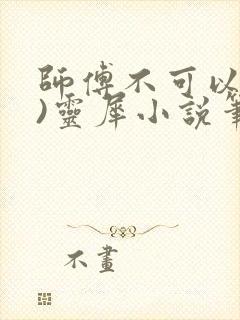 師傅不可以
)靈犀小說筆
不畫